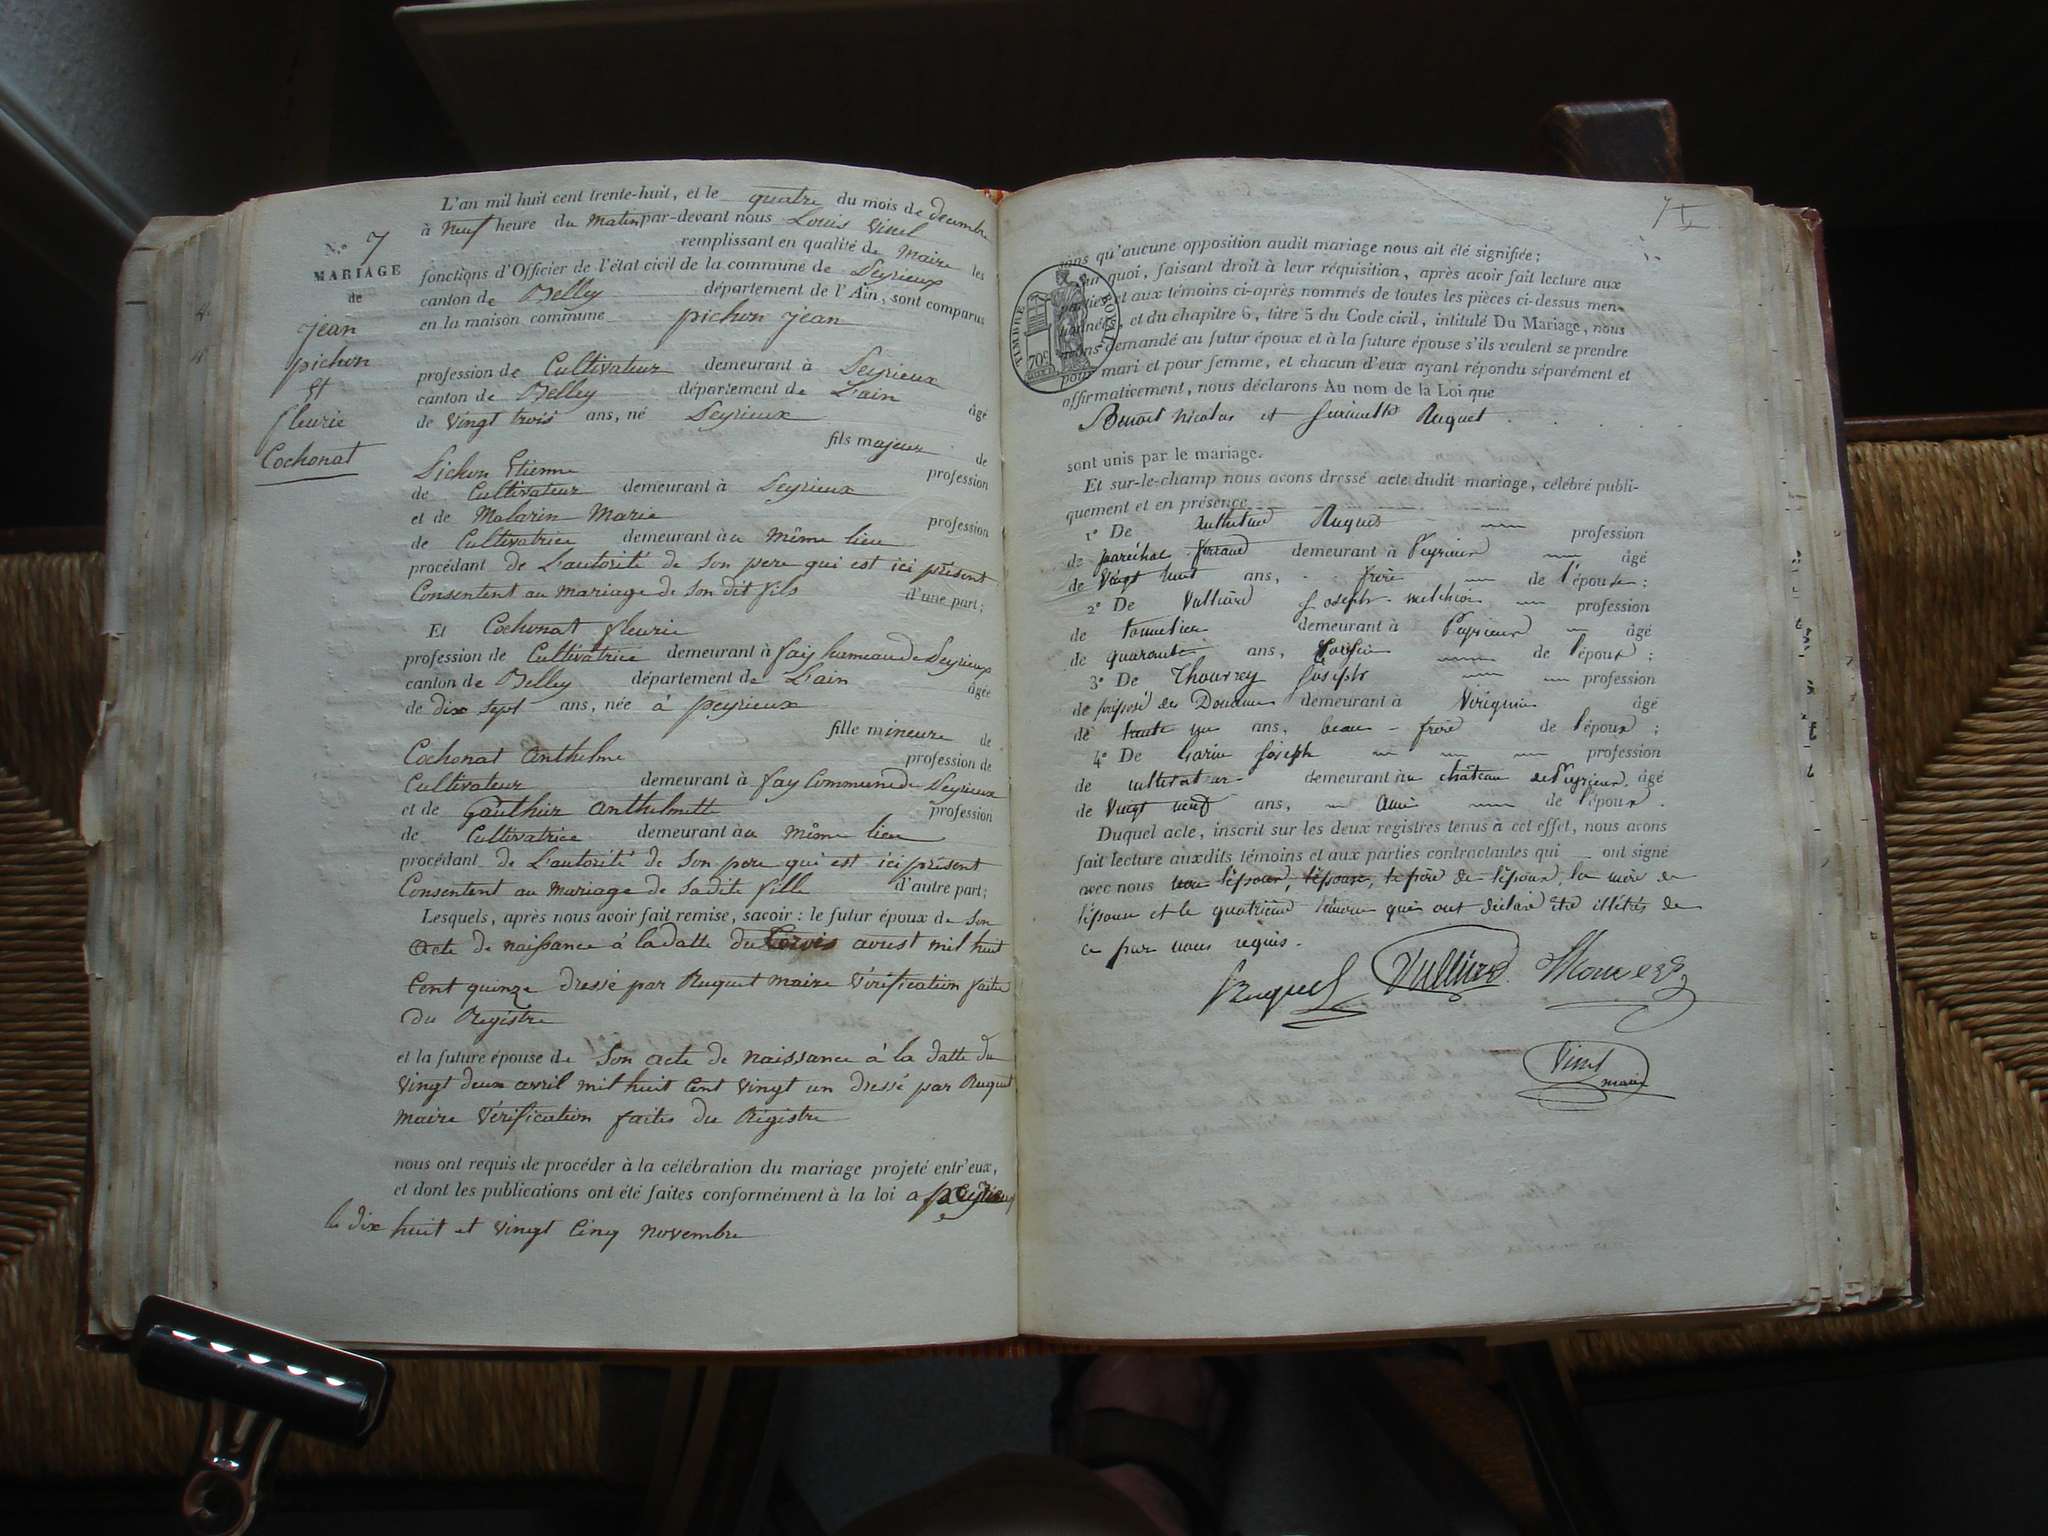 L'an mil huit cent trente-huit, et le quatre du mois de decembre
à neuf heure du matin par-devant nous Louis Vinel
remplissant en qualité de maire les
fonctions d'Officier de l'état civil de la commune de Peyrieux
canton de Belley département de l'Ain, sont comparus
en la maison commune pichon jean
N.º 7
MARIAGE
de
jean
pichon
Et
fleurie
Cochonat
profession de Cultivateur demeurant à Peyrieux
canton de Belley département de L'ain âgé
de vingt trois ans, né Peyrieux
fils majeur de
Pichon Etienne profession
de Cultivateur demeurant à Peyrieux
et de Molarin Marie profession
de Cultivatrice demeurant au même lieu
procédant de L'autorité de Son pere qui est ici présent
Consentent au mariage de Son dit fils d'une part;
Et Cochonat fleurie
profession de Cultivatrice demeurant à fay hameau de Peyrieux
canton de Belley département de L'ain âgée
de dix Sept ans, née à peyrieux
fille mineure de
Cochonat Anthelme profession de
Cultivateur demeurant à fay Commune de Peyrieux
et de Gauthier Anthelmette profession
de Cultivatrice demeurant au même lieu
procédant de L'autorité de Son pere qui est ici présent
Consentent au mariage de Sadite fille d'autre part;
Lesquels, après nous avoir fait remise, savoir : le futur époux de Son
Acte de naissance à la datte du avust mil huit
Cent quinze dressé par Ruquet maire Vérification faite
du Registre
et la future épouse de Son acte de naissance à la datte du
Vingt deux avril mil huit Cent vingt un dressé par Ruquet
maire Vérification faites du Régistre
nous ont requis de procéder à la célébration du mariage projeté entr'eux,
et dont les publications ont été faites conformément à la loi a peyrieux
les dix huit et vingt Cinq novembre
7
sans qu'aucune opposition audit mariage nous ait été signifiée;
En quoi, faisant droit à leur réquisition, après avoir fait lecture aux
parties et aux témoins ci-après nommés de toutes les pièces ci-dessus men-
tionnées, et du chapitre 6, titre 5 du Code civil, intitulé Du Mariage, nous
avons demandé au futur époux et à la future épouse s'ils veulent se prendre
pour mari et pour femme, et chacun d'eux ayant répondu séparément et
affirmativement, nous déclarons Au nom de la Loi que
TIMBRE ROYAL
70c
Benoit Nicolas et Ruquet
sont unis par le mariage.
Et sur-le-champ nous avons dressé acte dudit mariage, célébré publi-
quement et en présence
1º De Ruquet profession
de maréchal ferrand demeurant à Peyrieux âgé
de vingt huit ans, frère de l'épouse;
2º De Vulliérd Joseph melchior profession
de tonnelier demeurant à Peyrieux âgé
de quarante ans, de l'époux;
3º De Thourrey Joseph profession
de préposé des Douanes demeurant à Virignin âgé
de trente un ans, beau-frère de l'époux;
4º De Garin Joseph profession
de cultivateur demeurant au château de Peyrieux âgé
de vingt neuf ans, ami de l'époux.
Duquel acte, inscrit sur les deux registres tenus à cet effet, nous avons
fait lecture auxdits témoins et aux parties contractantes qui ont signé
avec nous non l'époux, l'épouse, le père de l'époux, la mère de
l'épouse et le quatrième témoin qui ont déclaré être illétrés de
ce par nous requis.
Ruquet Vulliérd
Vinel
maire